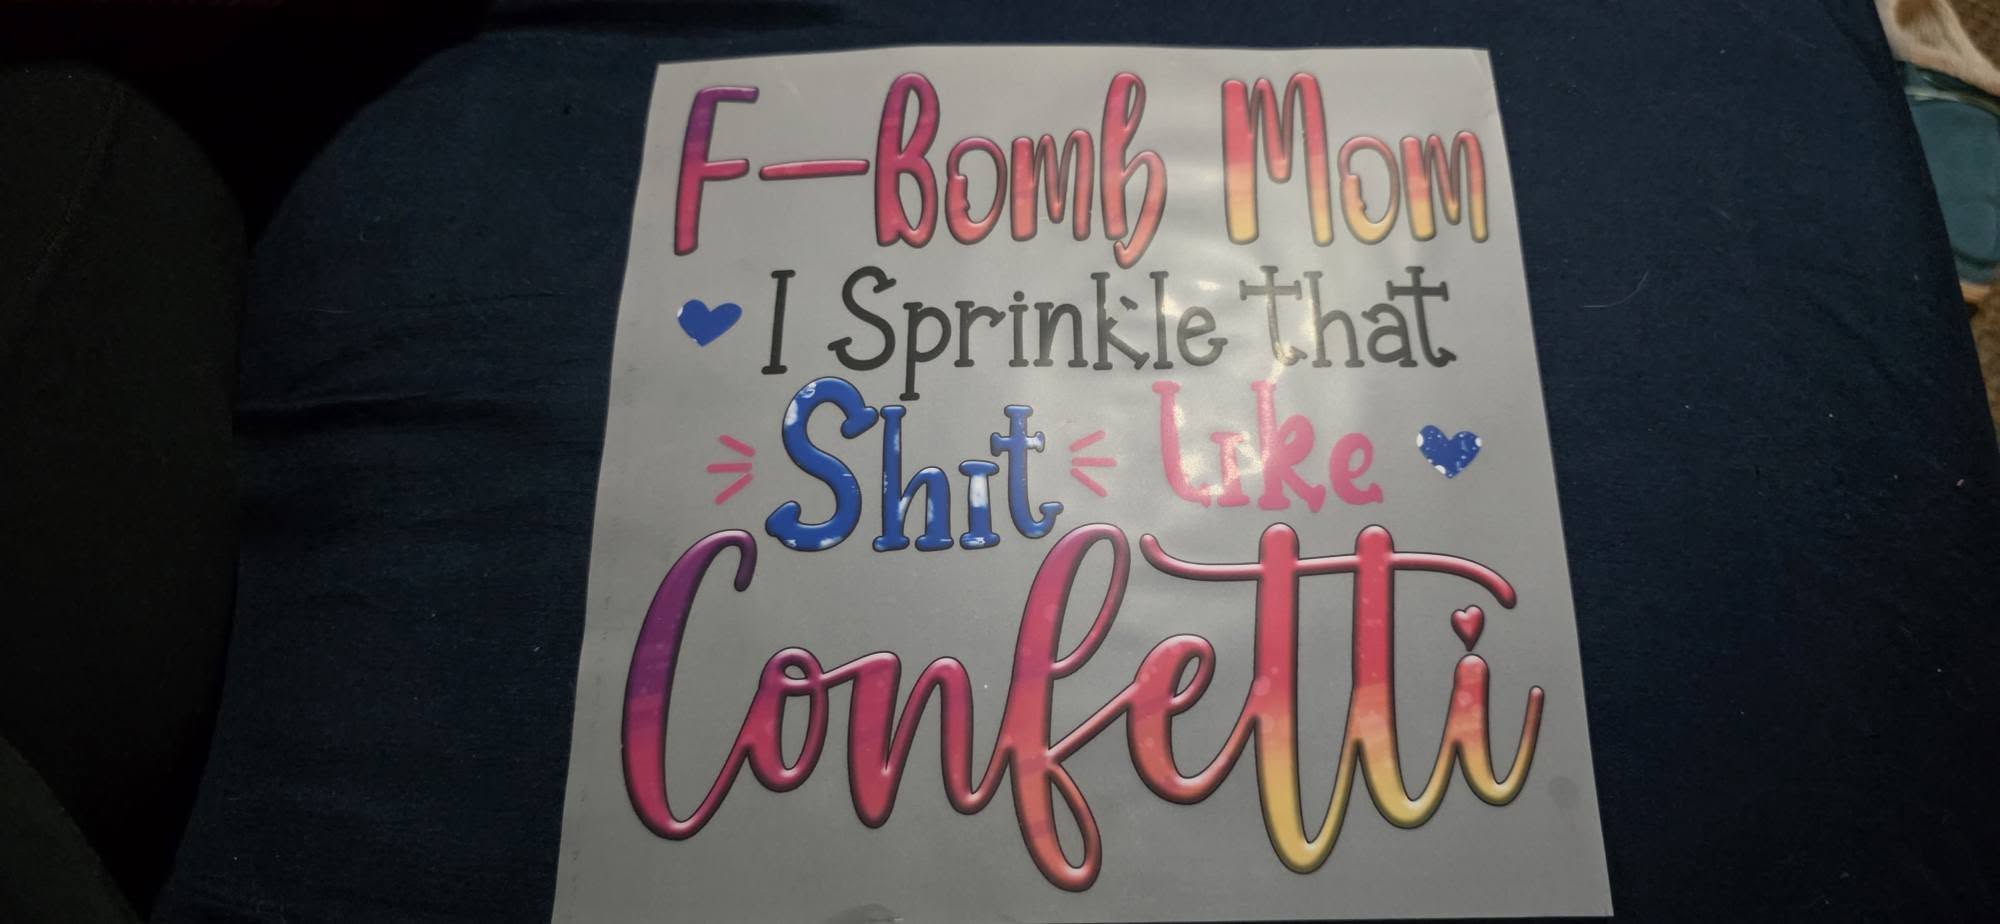 F-Bomb Mom
I Sprinkle that
Shit like
Confetti